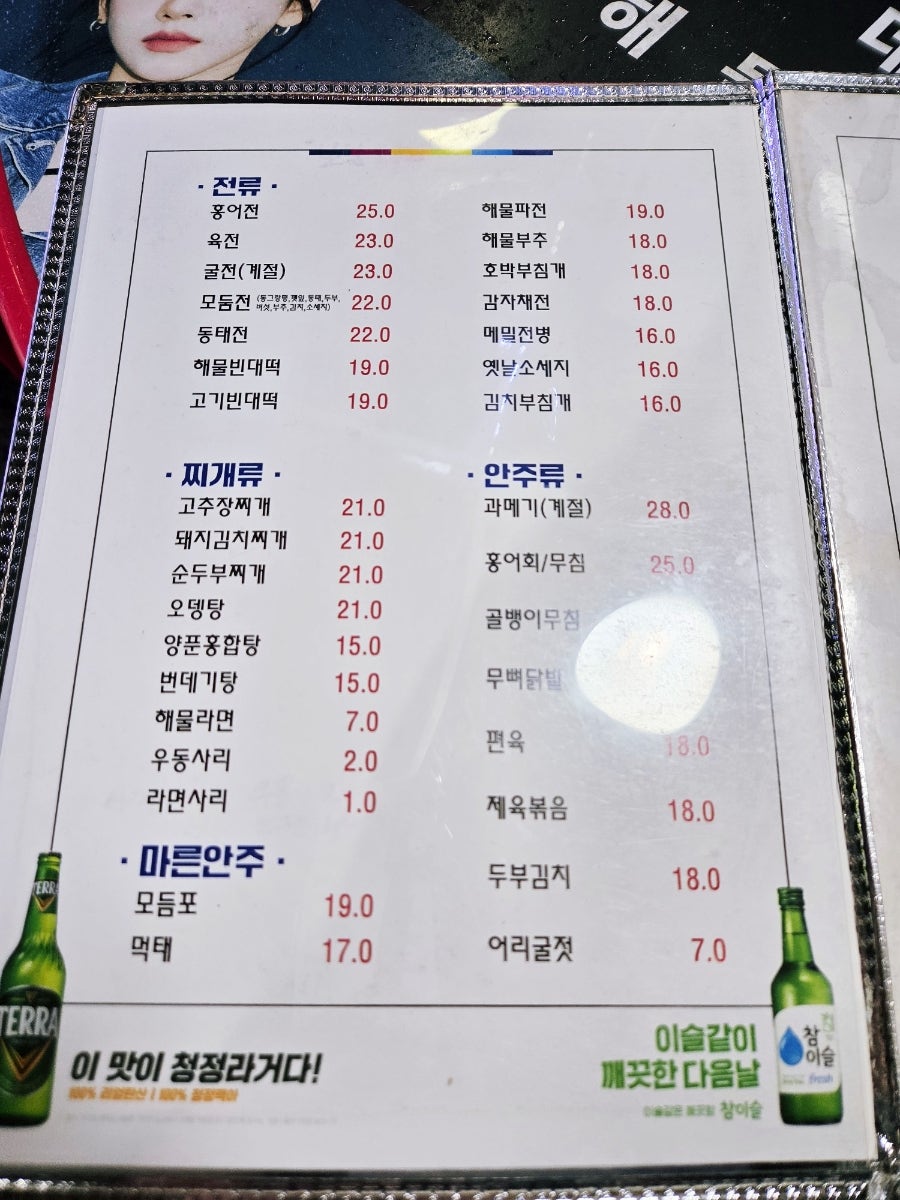 해
· 전류 ·
홍어전 25.0
육전 23.0
굴전(계절) 23.0
모듬전 (동그랑땡,깻잎,동태,두부, 버섯,부추,김치,소세지) 22.0
동태전 22.0
해물빈대떡 19.0
고기빈대떡 19.0
해물파전 19.0
해물부추 18.0
호박부침개 18.0
감자채전 18.0
메밀전병 16.0
옛날소세지 16.0
김치부침개 16.0
· 찌개류 ·
고추장찌개 21.0
돼지김치찌개 21.0
순두부찌개 21.0
오뎅탕 21.0
양푼홍합탕 15.0
번데기탕 15.0
해물라면 7.0
우동사리 2.0
라면사리 1.0
· 마른안주 ·
모듬포 19.0
먹태 17.0
· 안주류 ·
과메기(계절) 28.0
홍어회/무침 25.0
골뱅이무침
무뼈닭발
편육 18.0
제육볶음 18.0
두부김치 18.0
어리굴젓 7.0
TERRA
TERRA
이 맛이 청정라거다!
100% 리얼탄산 | 100% 청정맥아
이슬같이
깨끗한 다음날
참이슬
참
이슬
fresh